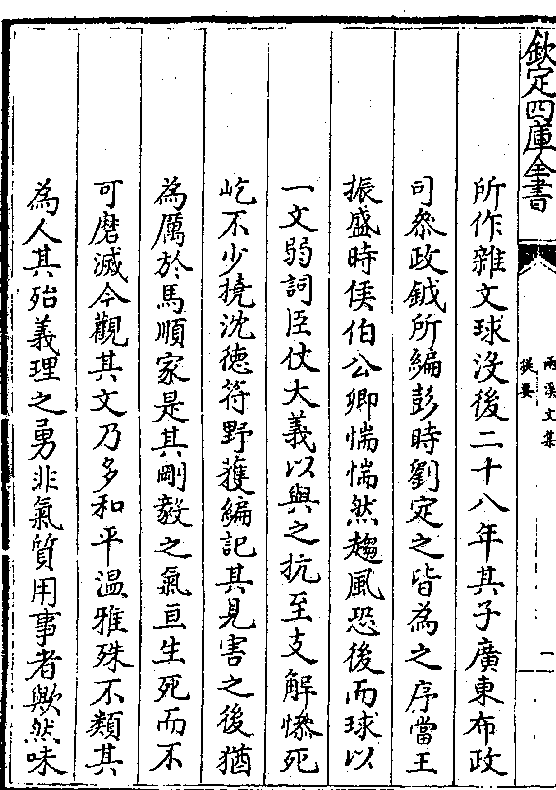 欽定四庫全書
兩溪文集
提要
一
所作雜文球沒後二十八年其子廣東布政
司叅政鉞所編彭時劉定之皆為之序當王
振盛時侯伯公卿惴惴然趨風恐後而球以
一文弱詞臣仗大義以與之抗至支解慘死
屹不少撓沈徳符野獲編記其見害之後猶
為厲於馬順家是其剛毅之氣亘生死而不
可磨滅今觀其文乃多和平温雅殊不類其
為人其殆義理之勇非氣質用事者歟然味